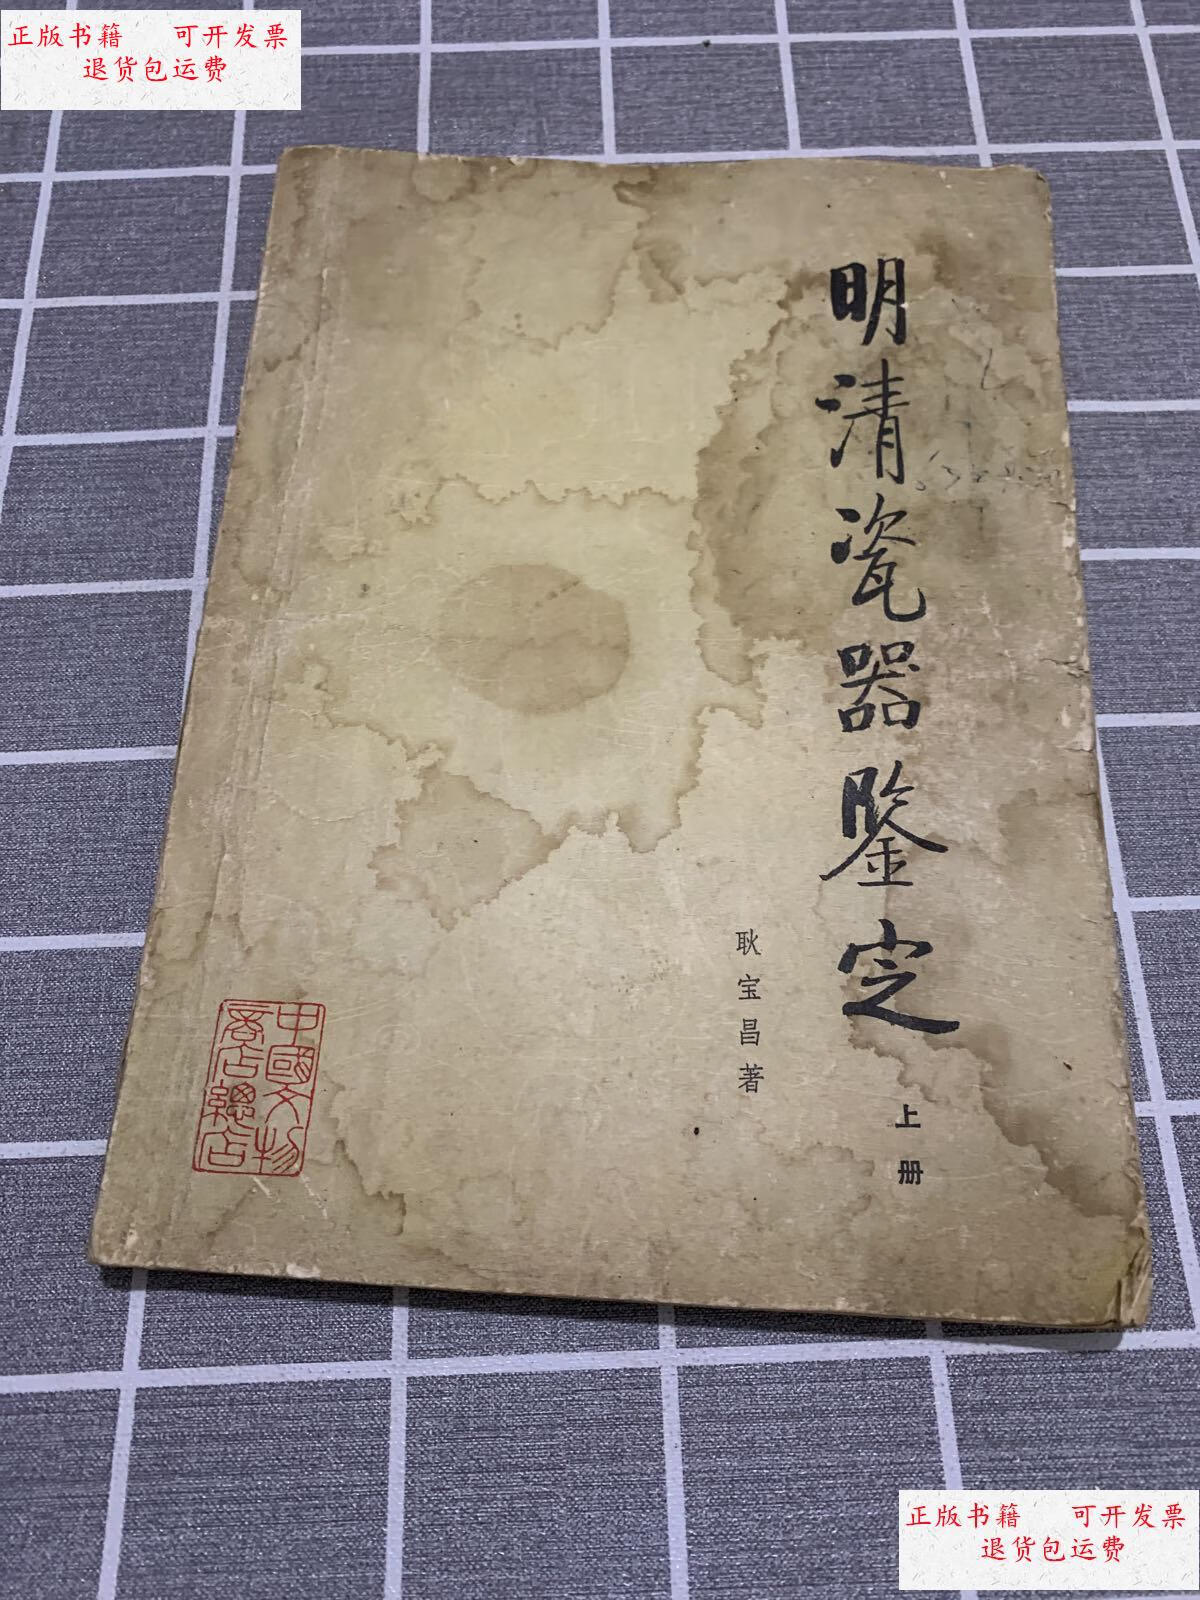 正版书籍 可开发票
退货包运费
明清瓷器鉴定
上册
耿宝昌著
中國文物
商店總店
正版书籍 可开发票
退货包运费